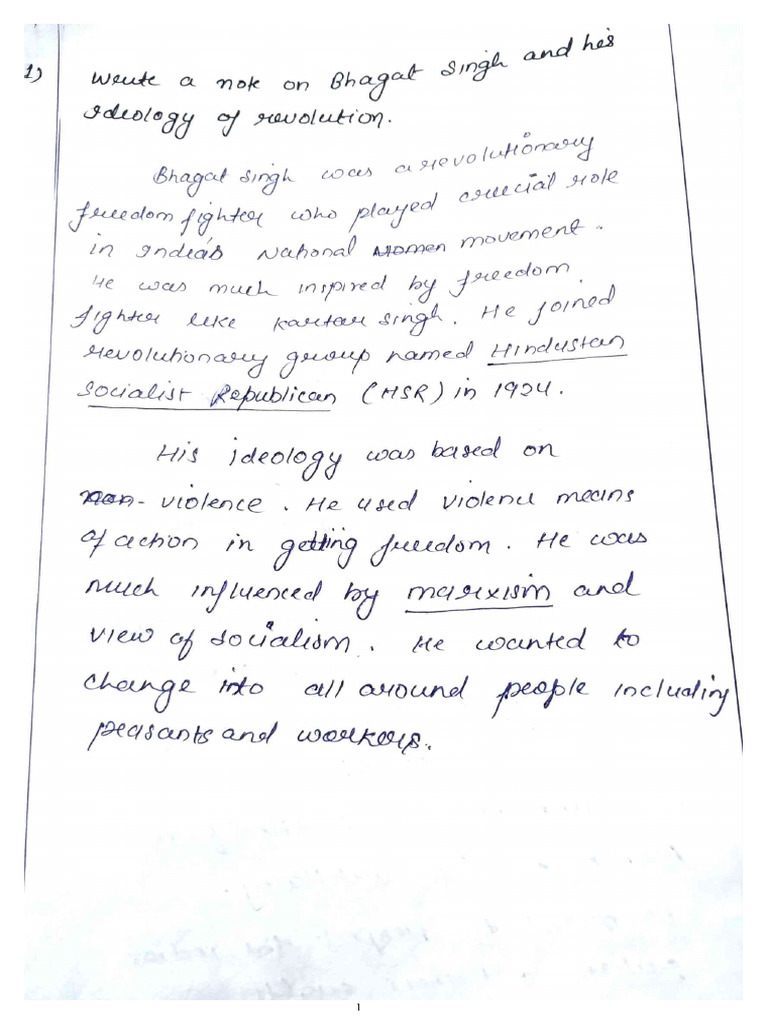 1) Write a note on Bhagat Singh and his
Ideology of revolution.
Bhagat Singh was a revolutionary
freedom fighter who played crucial role
in India's National movement.
He was much inspired by freedom
fighter like Kartar Singh. He joined
revolutionary group named Hindustan
Socialist Republican (HSR) in 1924.
His ideology was based on
violence. He used violence means
of action in getting freedom. He was
much influenced by marxism and
view of socialism. He wanted to
change into all around people including
peasants and workers.
1